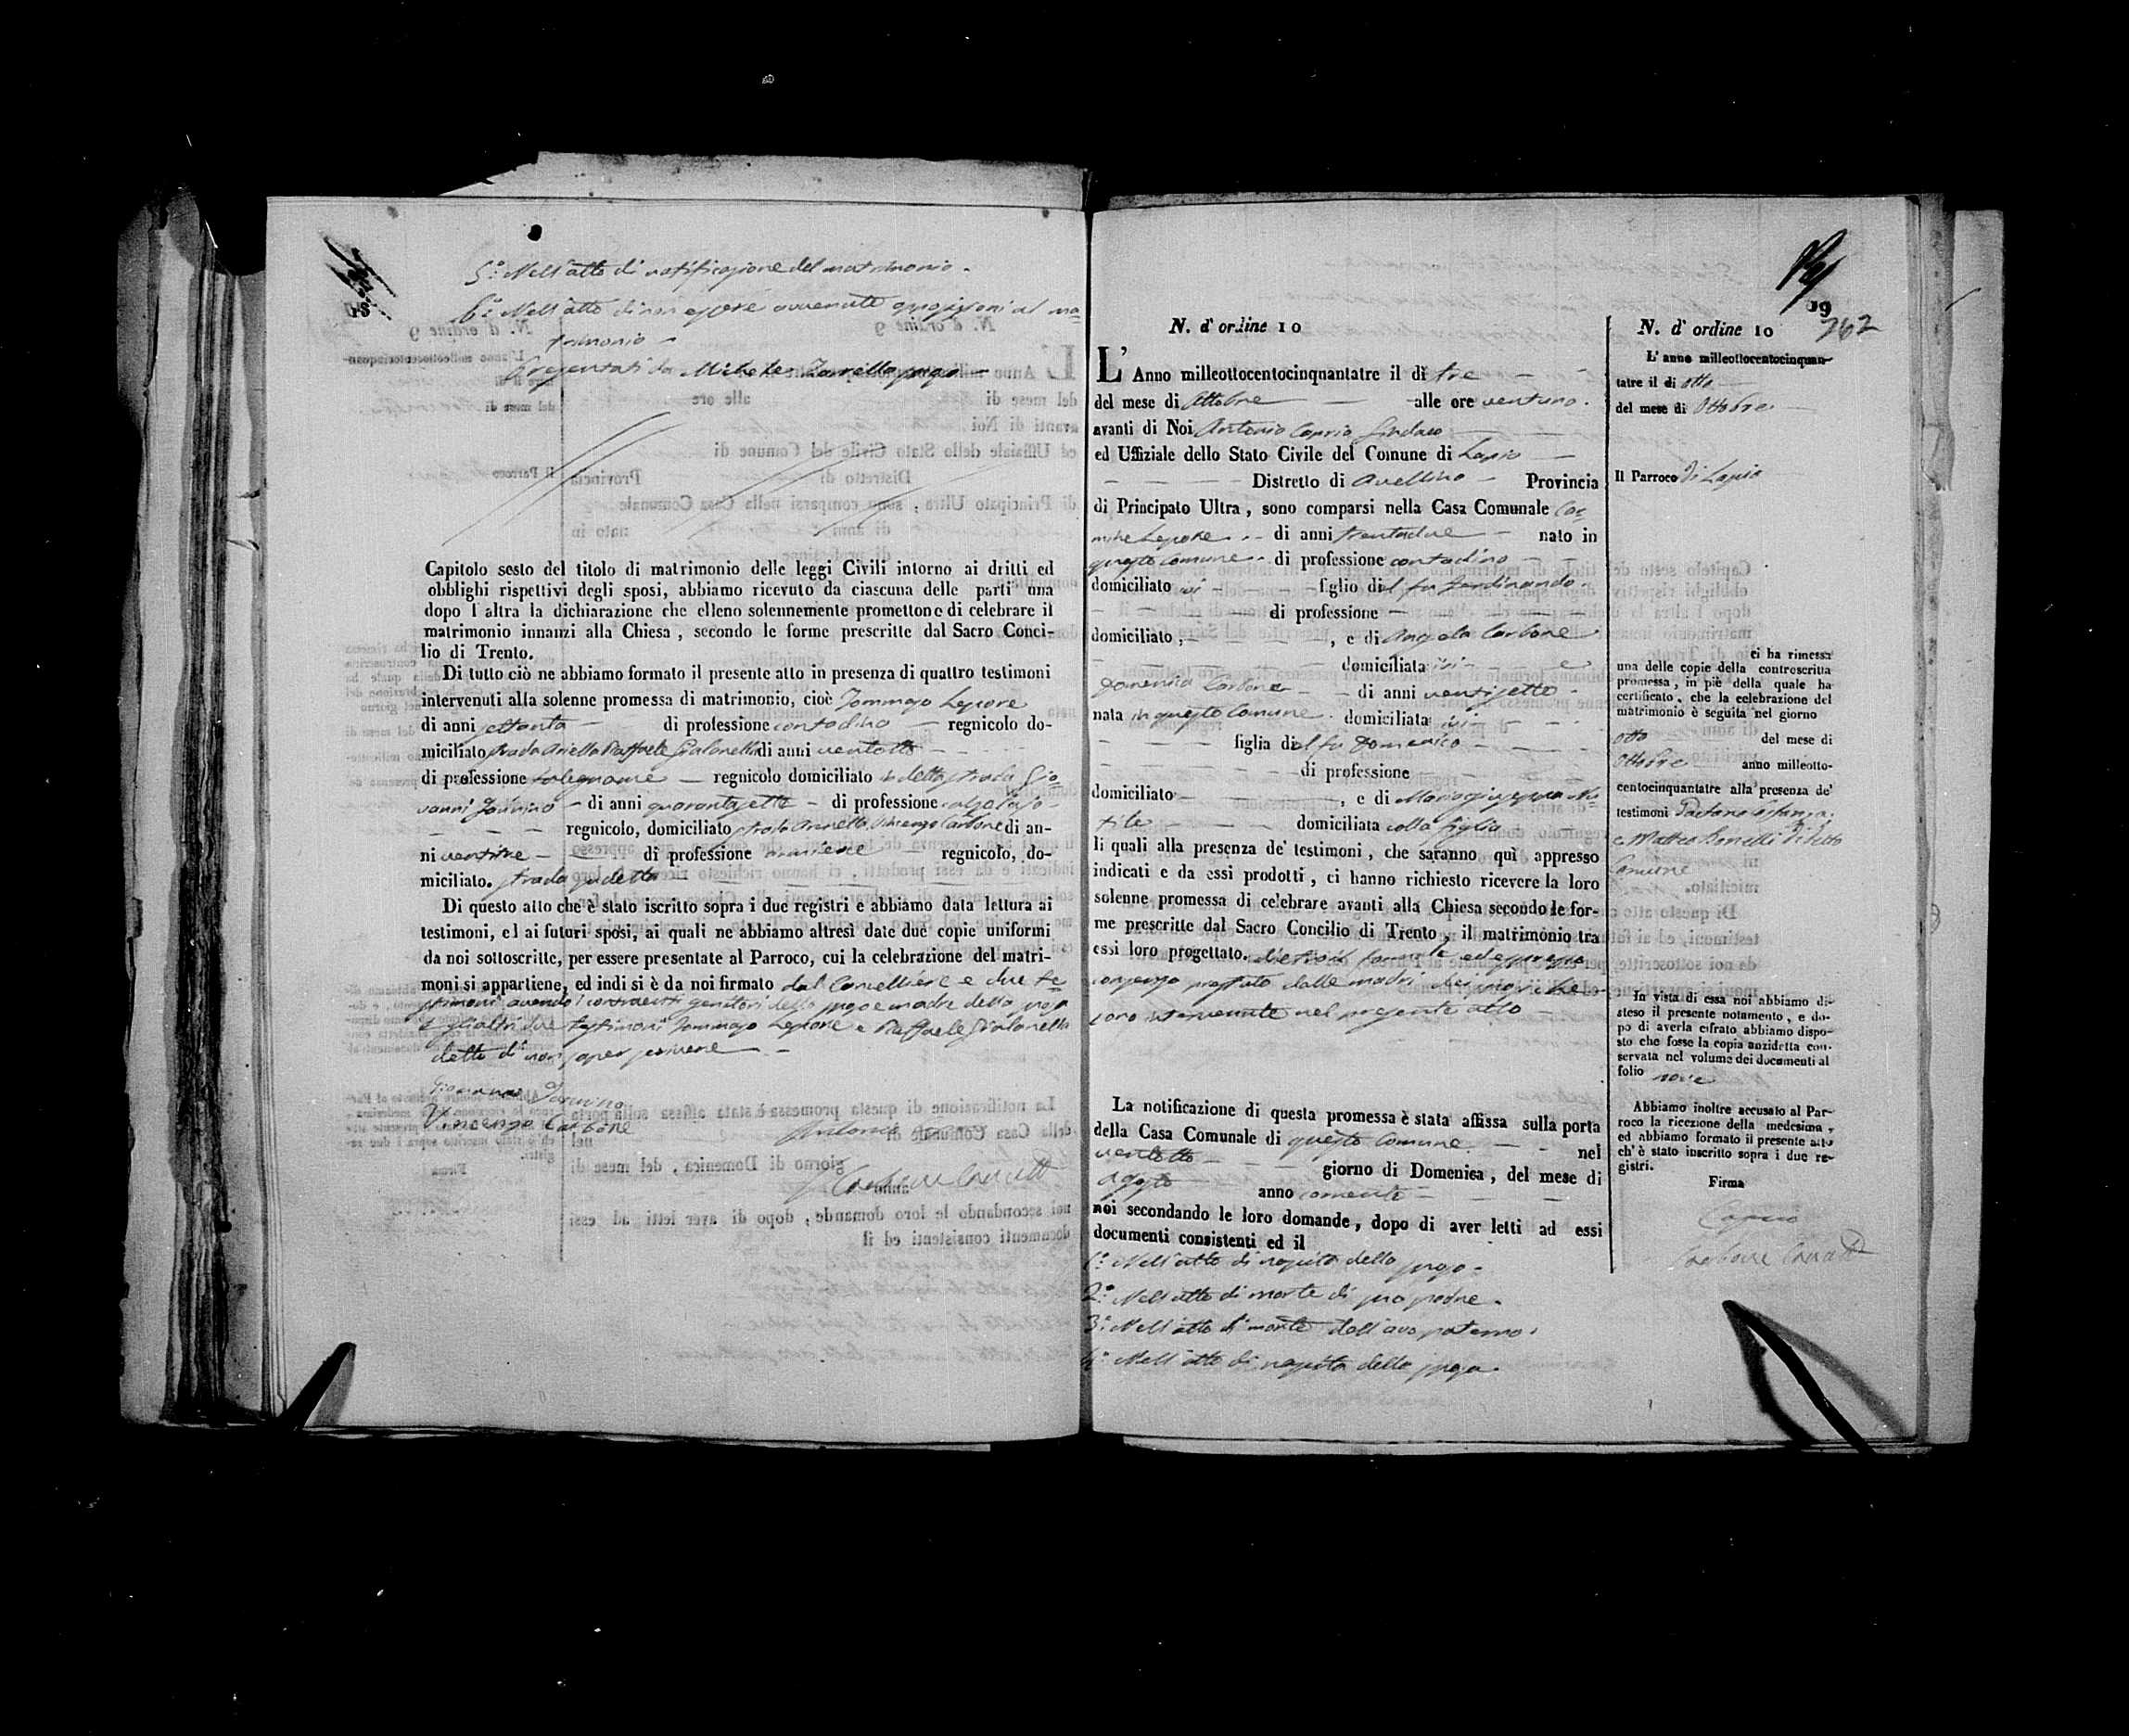 18
5.° Nell'atto di notificazione del matrimonio.
6.° Nell'atto di non essere avvenute opposizioni al ma=
trimonio
Presentati da Michele Zarrella sposo
Capitolo sesto del titolo di matrimonio delle leggi Civili intorno ai dritti ed
obblighi rispettivi degli sposi, abbiamo ricevuto da ciascuna delle parti una
dopo l'altra la dichiarazione che elleno solennemente promettono di celebrare il
matrimonio innanzi alla Chiesa, secondo le forme prescritte dal Sacro Conci-
lio di Trento.
Di tutto ciò ne abbiamo formato il presente atto in presenza di quattro testimoni
intervenuti alla solenne promessa di matrimonio, cioè Tommaso Lepore
di anni settanta di professione contadino regnicolo do-
miciliato strada Raffaele Gialonella di anni ventotto
di professione falegname regnicolo domiciliato in detta strada Gio=
vanni Iannino di anni quarantasette di professione calzolajo
regnicolo, domiciliato strada Vincenzo Carbone di an-
ni ventitre di professione regnicolo, do-
miciliato. strada sudetta
Di questo atto che è stato iscritto sopra i due registri e abbiamo data lettura ai
testimoni, ed ai futuri sposi, ai quali ne abbiamo altresì date due copie uniformi
da noi sottoscritte, per essere presentate al Parroco, cui la celebrazione del matri-
moni si appartiene, ed indi si è da noi firmato dal Cancelliere e due te=
stimoni avendo i contraenti genitori dello sposo e madre della sposa
e gli altri due testimoni Tommaso Lepore e Raffaele Gialonella
detto di non saper scrivere
Giovanni Iannino
Vincenzo Carbone
Antonio
Carbone
19
762
N. d' ordine 10
L' Anno milleottocentocinquantatre il dì tre
del mese di Ottobre alle ore ventuno.
avanti di Noi Antonio Caprio Sindaco
ed Uffiziale dello Stato Civile del Comune di Lapio
Distretto di Avellino Provincia
di Principato Ultra, sono comparsi nella Casa Comunale Car=
mine Lepore di anni trentadue nato in
questo Comune di professione contadino
domiciliato ivi figlio del fu Ferdinando
di professione
domiciliato, , e di Angela Carbone
domiciliata ivi e
Domenica Carbone di anni ventisette
nata in questo Comune domiciliata ivi
figlia del fu Domenico
di professione
domiciliato , e di Mariagiuseppa
domiciliata colla figlia
li quali alla presenza de' testimoni, che saranno quì appresso
indicati e da essi prodotti, ci hanno richiesto ricevere la loro
solenne promessa di celebrare avanti alla Chiesa secondo le for-
me prescritte dal Sacro Concilio di Trento, il matrimonio tra
essi loro progettato. formale ed espresso
consenso prestato dalle madri dei sposi che
sono intervenute nel presente atto
La notificazione di questa promessa è stata affissa sulla porta
della Casa Comunale di questo Comune nel
ventotto giorno di Domenica, del mese di
Agosto anno corrente
noi secondando le loro domande, dopo di aver letti ad essi
documenti consistenti ed il
1.° Nell'atto di nascita dello sposo.
2.° Nell'atto di morte di suo padre.
3.° Nell'atto di morte dell'avo paterno.
4.° Nell'atto di nascita della sposa.
N. d' ordine 10
L' anno milleottocentocinquan-
tatre il di otto
del mese di Ottobre
Il Parroco di Lapio
ci ha rimessa
una delle copie della controscritta
promessa, in piè della quale ha
certificato, che la celebrazione del
matrimonio è seguita nel giorno
otto del mese di
Ottobre anno milleotto-
centocinquantatre alla presenza de'
testimoni Gaetano
e Matteo di detto
Comune
In vista di essa noi abbiamo di-
steso il presente notamento, e do-
po di averla cifrato abbiamo dispo-
sto che fosse la copia anzidetta con-
servata nel volume dei documenti al
folio nove
Abbiamo inoltre accusato al Par-
roco la ricezione della medesima,
ed abbiamo formato il presente atto
ch' è stato inscritto sopra i due re-
gistri.
Firma
Caprio
Carbone